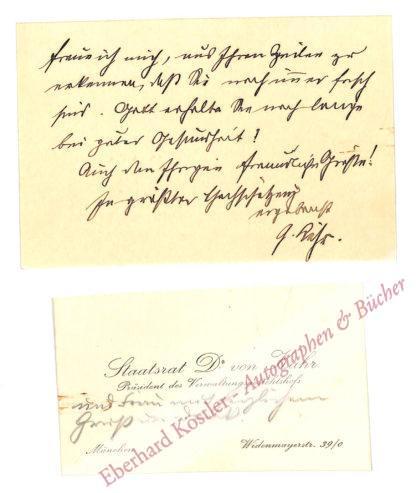 freue ich mich, aus Ihren Zeilen zu
erkennen, daß Sie noch immer frisch
sind. Gott erhalte Sie noch lange
bei guter Gesundheit!
Auch den Ihrigen freundliche Grüße!
In größter Hochschätzung
ergebenst
G. Kahr.
Staatsrat Dr. von Kahr
Präsident des Verwaltungsgerichtshofs
und Frau mit herzlichem
Gruß
München
Widenmayerstr. 39/0
Eberhard Köstler - Autographen & Bücher